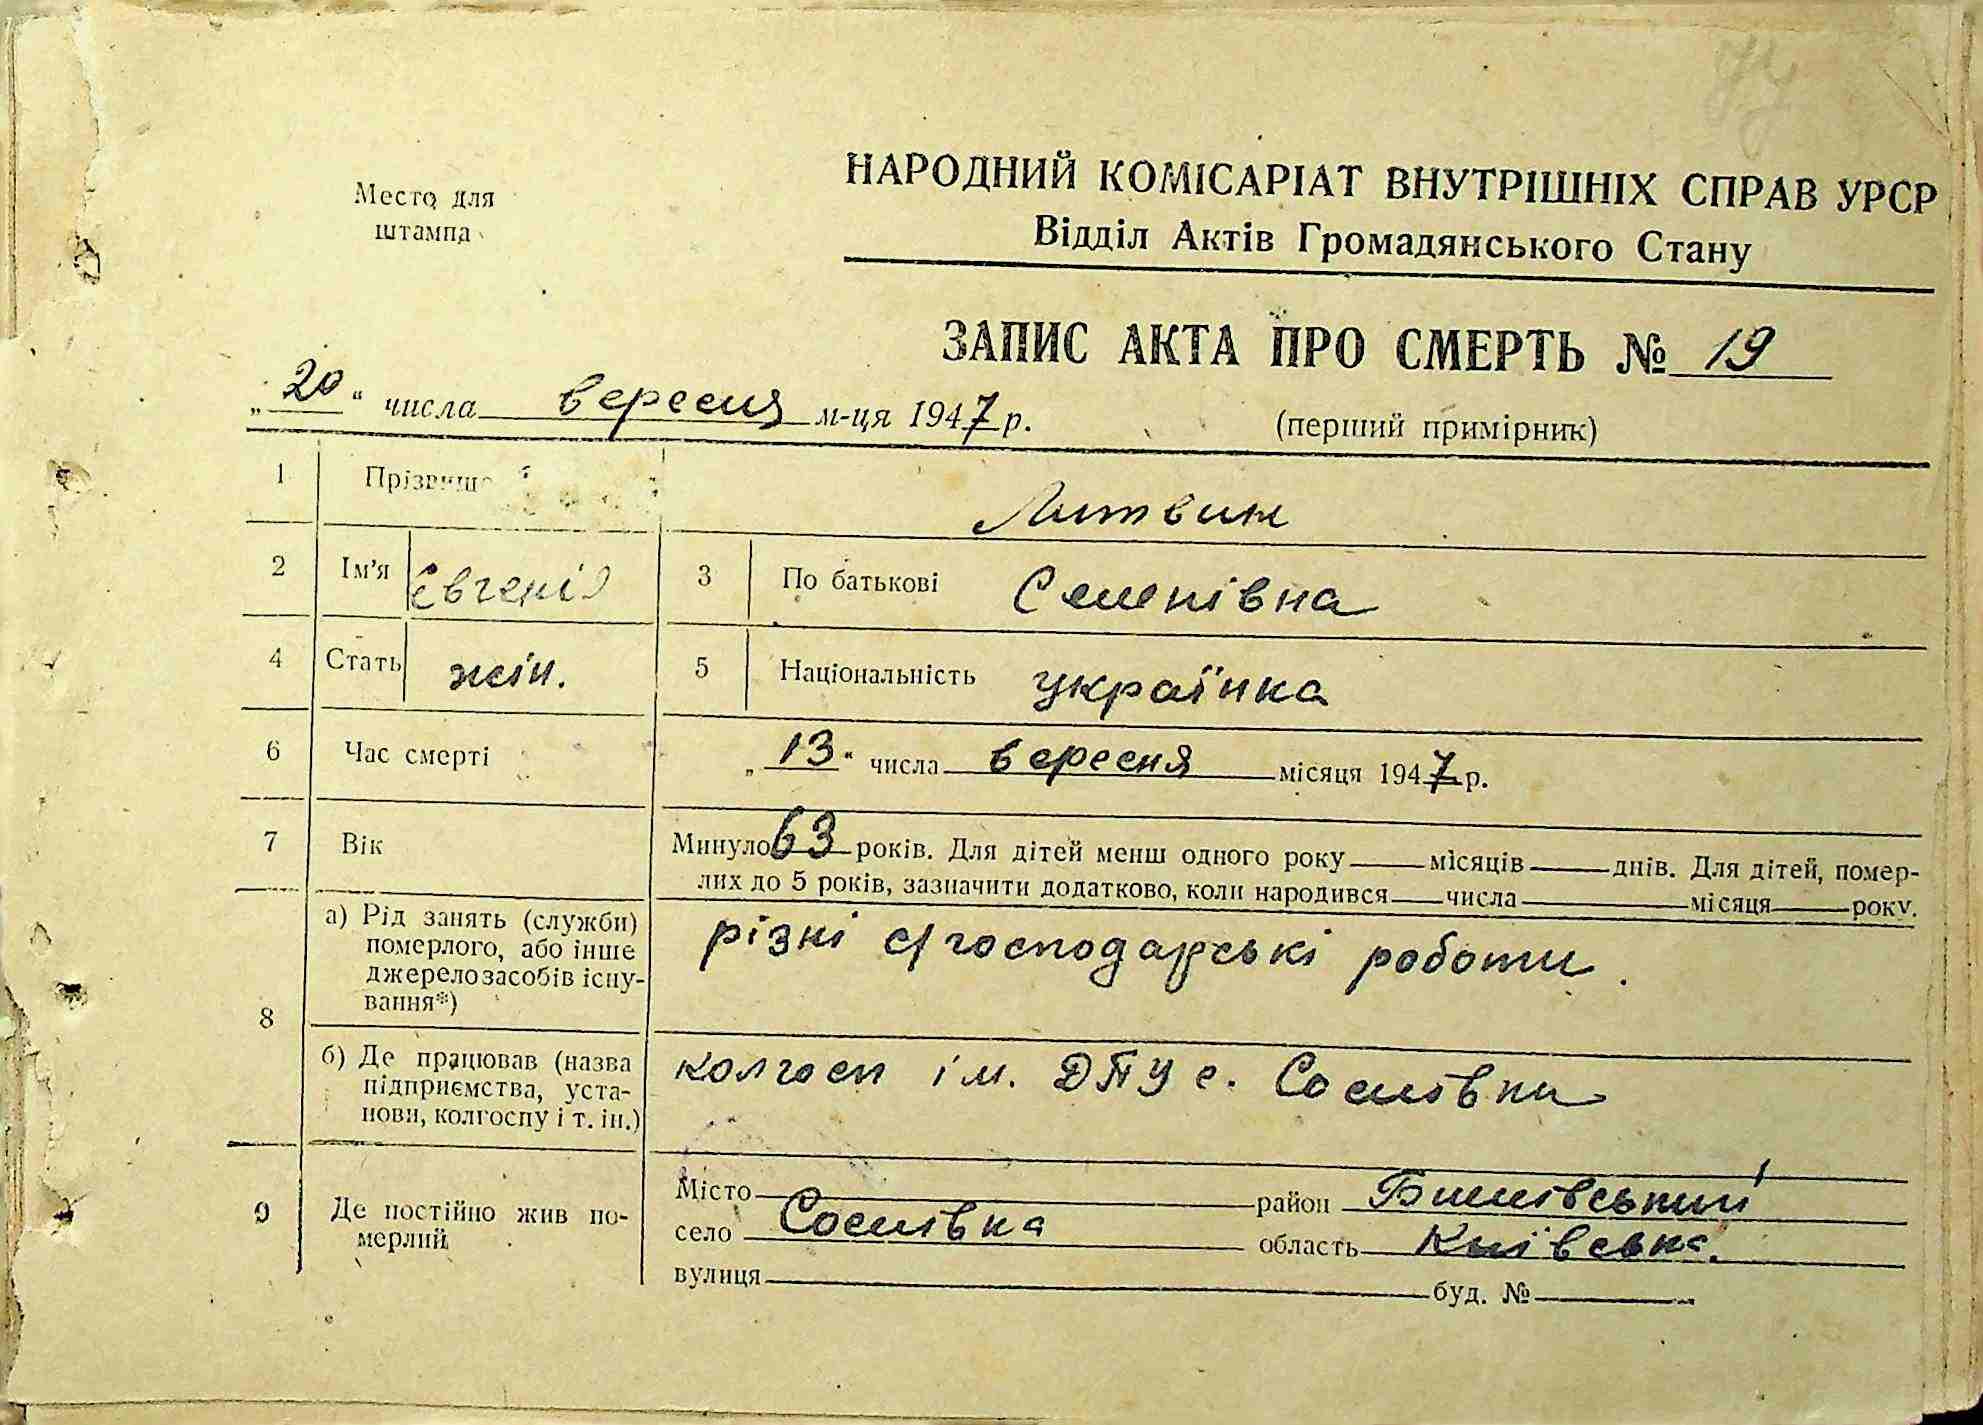 Место для
штампа
НАРОДНИЙ КОМІСАРІАТ ВНУТРІШНІХ СПРАВ УРСР
Відділ Актів Громадянського Стану
ЗАПИС АКТА ПРО СМЕРТЬ № 19
„20“ числа вересня м-ця 1947 р.
(перший примірник)
1 Прізвище Литвин
2 Ім'я Євгенія 3 По батькові Семенівна
4 Стать жін. 5 Національність українка
6 Час смерті „13“ числа вересня місяця 1947 р.
7 Вік Минуло 63 років. Для дітей менш одного року місяців днів. Для дітей, помер-
лих до 5 років, зазначити додатково, коли народився числа місяця року.
8 а) Рід занять (служби)
померлого, або інше
джерело засобів існу-
вання*)
різні с/господарські роботи.
б) Де працював (назва
підприємства, уста-
нови, колгоспу і т. ін.)
колгосп ім. ДПУ с. Соснівки
9 Де постійно жив по-
мерлий
Місто район
село Соснівка область Київська.
вулиця буд. №